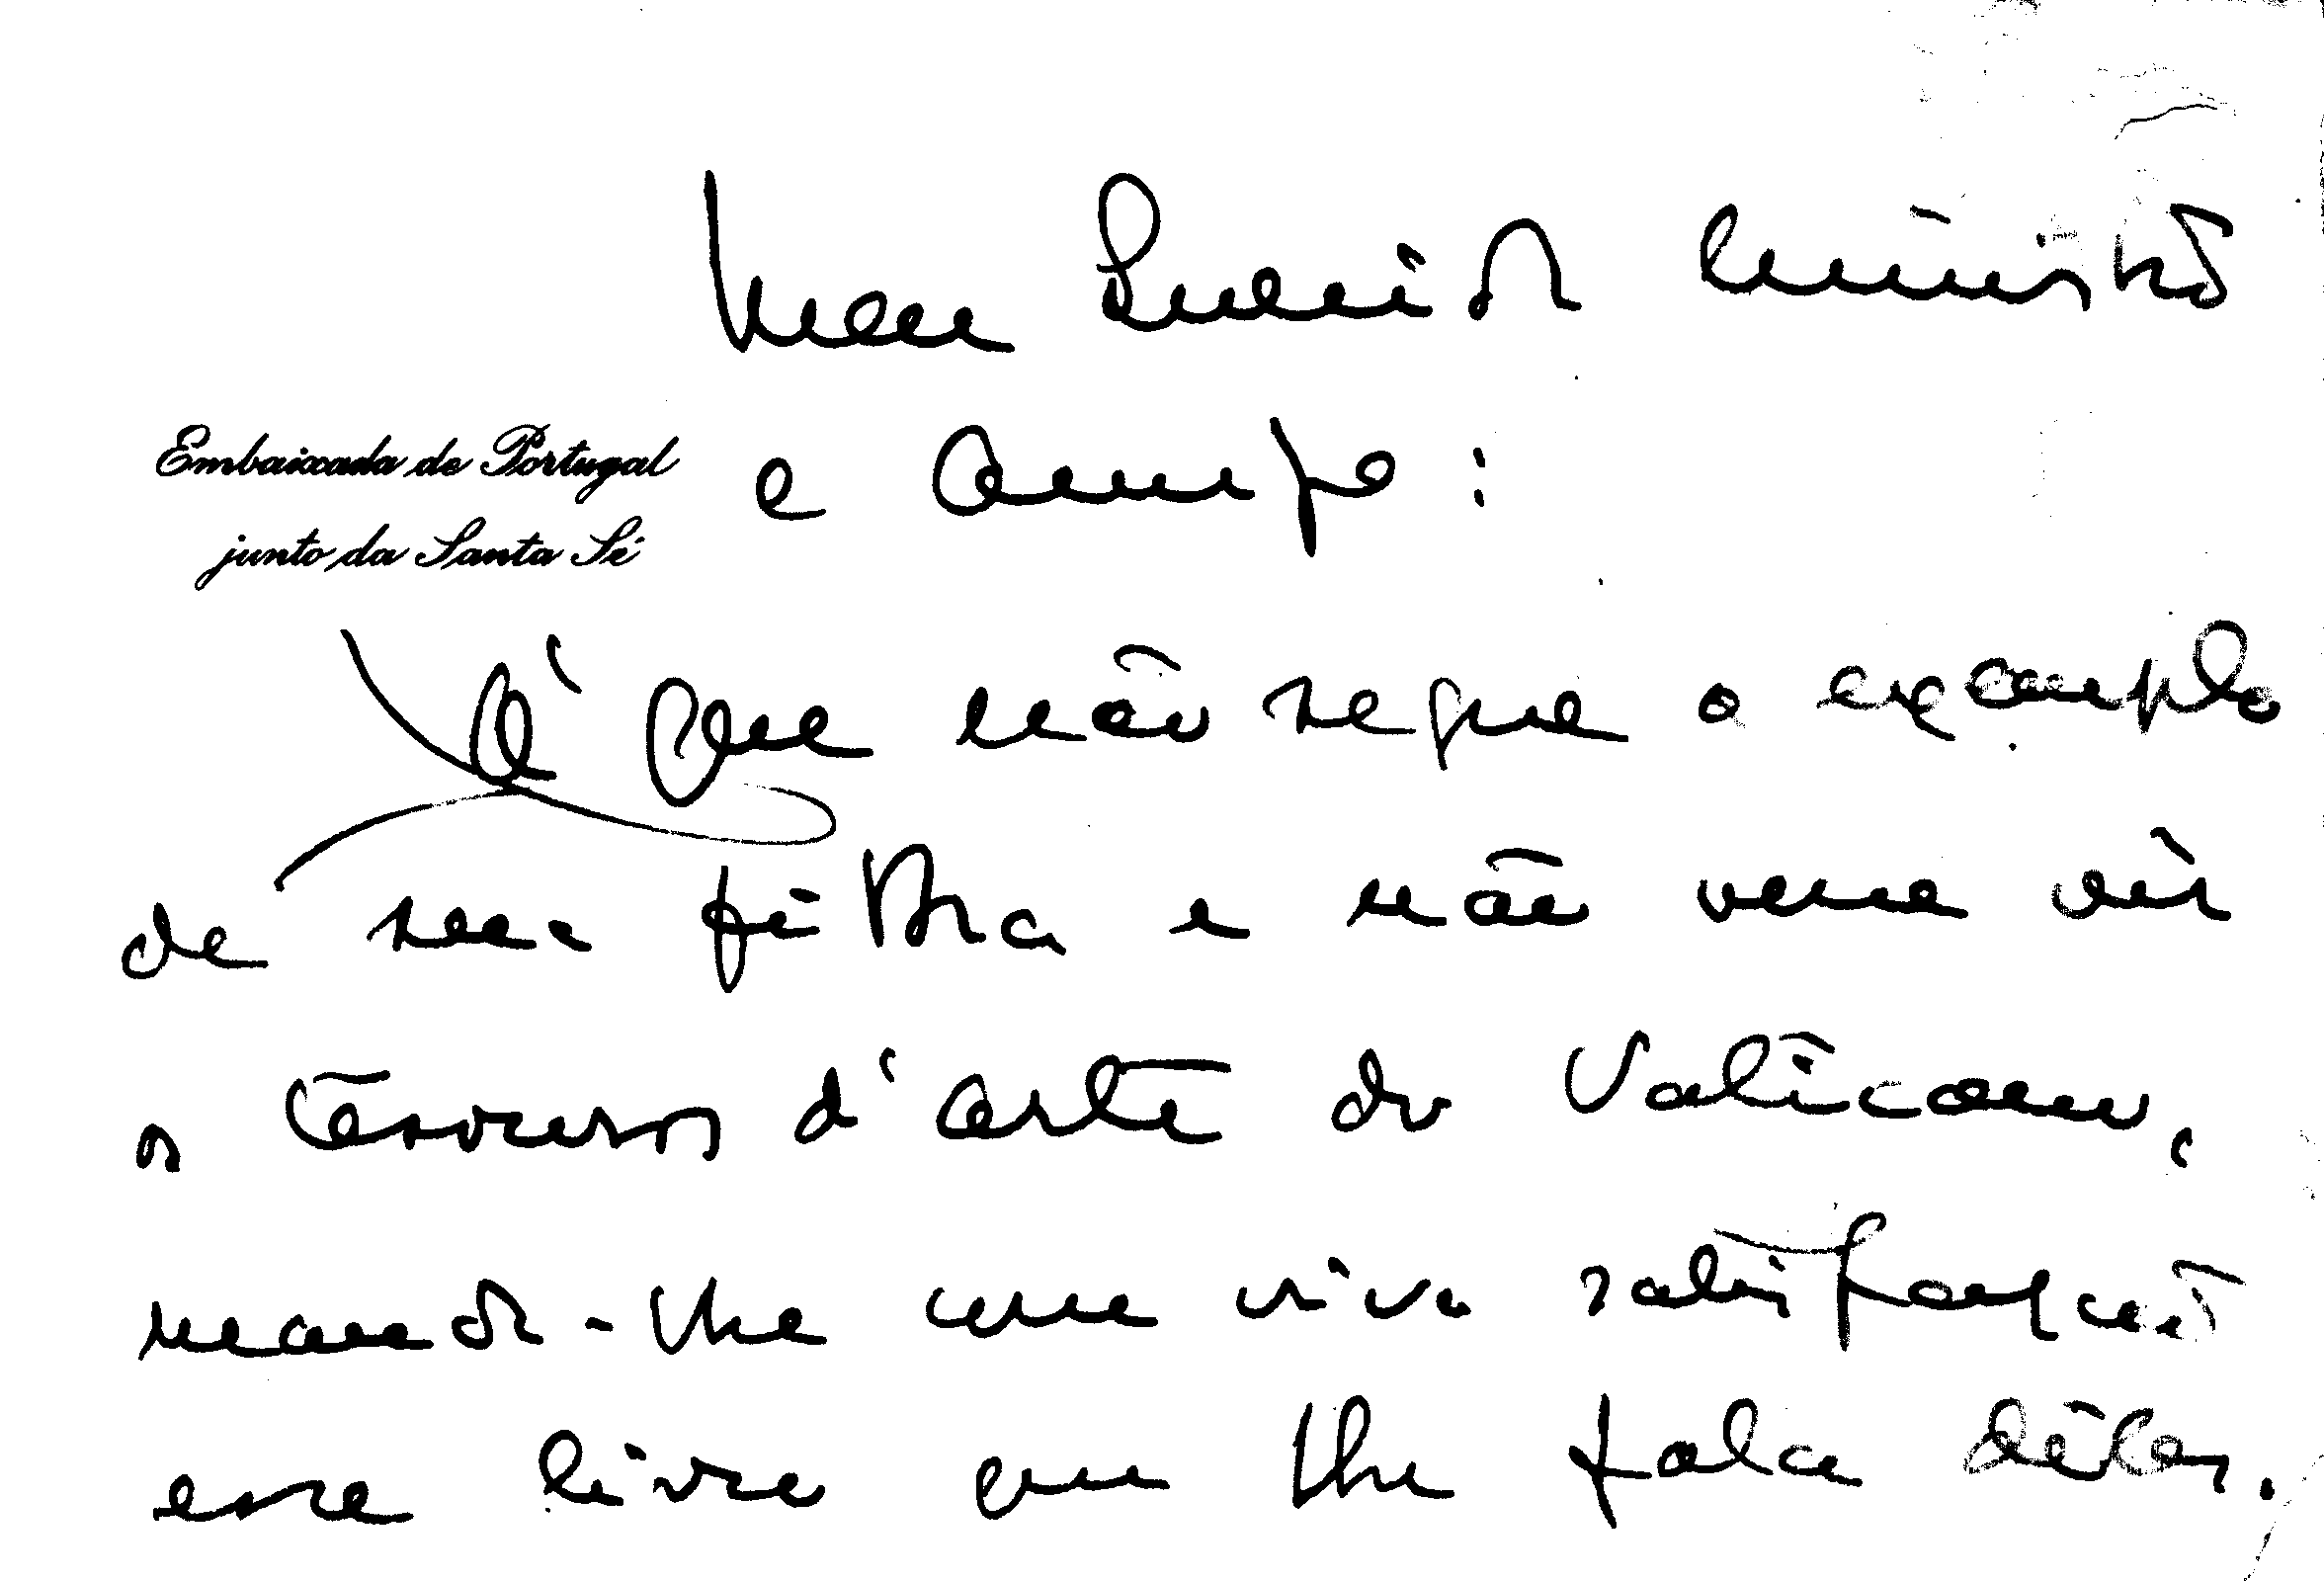 Meu Querido Ministro
Embaixada de Portugal
junto da Santa Sé
e Amigo:
Já que não segue o exemplo
de sua filha e não vem vêr
os tesouros d'arte do Vaticano,
mando-lhe com viva satisfação
esse livro que lhe fala dêles.